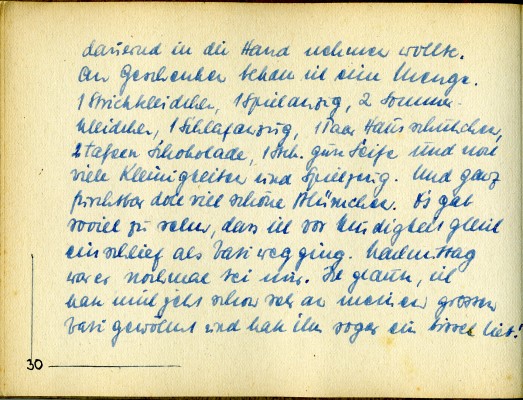 dauernd in die Hand nehmen wollte.
An Geschenken bekam ich eine Menge.
1 Strickkleidchen, 1 Spielanzug, 2 Sommer-
kleidchen, 1 Schlafanzug, 1 Paar Hausschuhchen,
2 Tafeln Schokolade, 1 Sch. gute Seife und noch
viele Kleinigkeiten und Spielzeug. Und ganz
furchtbar doll viel schöne Blümchen. Es gab
soviel zu sehen, dass ich vor Müdigkeit gleich
einschlief als Vati wegging. Nachmittag
war er nochmal bei mir. Ich glaub, ich
hab mich jetzt schon sehr an meinen grossen
Vati gewöhnt und hab ihn sogar ein bissel lieb!
30